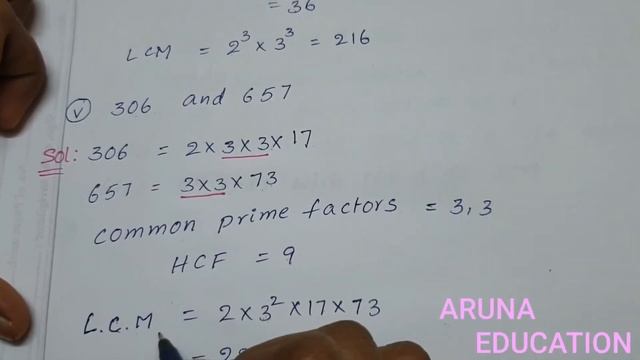 = 36
LCM = 2³ × 3³ = 216
(v) 306 and 657
Sol: 306 = 2 × 3 × 3 × 17
657 = 3 × 3 × 73
common prime factors = 3, 3
HCF = 9
L.C.M = 2 × 3² × 17 × 73
ARUNA
EDUCATION